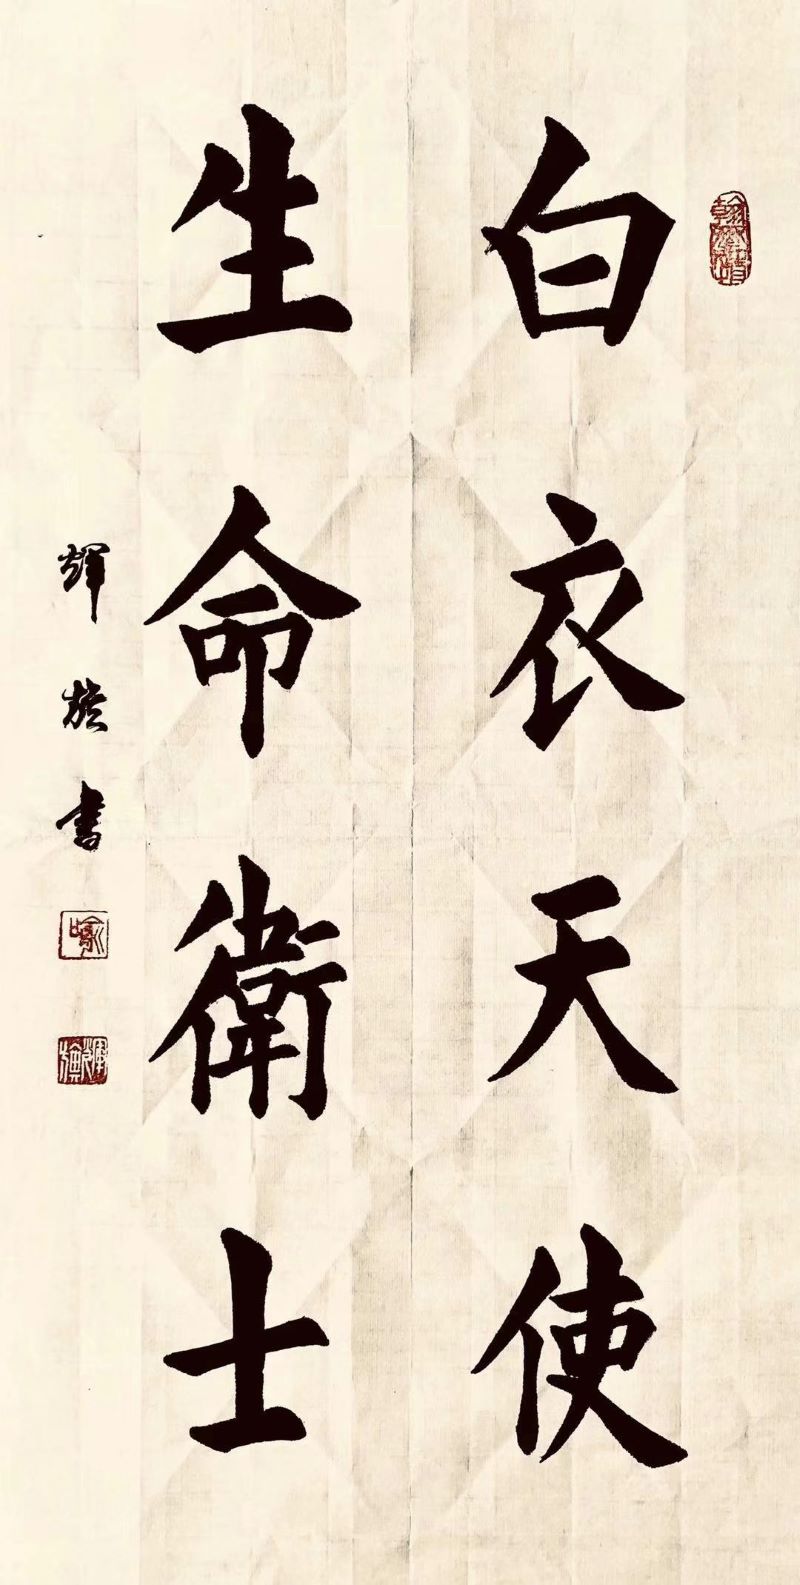 白衣天使
生命衛士
輝旌書